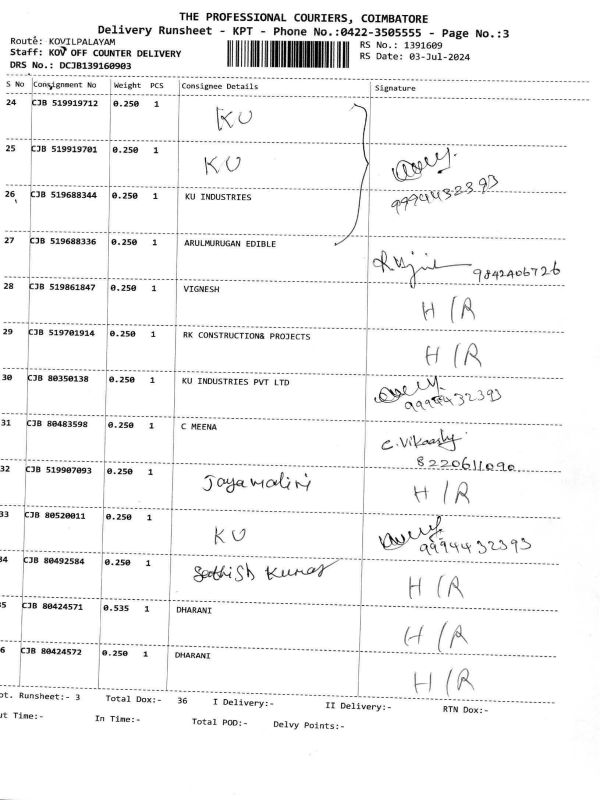 THE PROFESSIONAL COURIERS, COIMBATORE
Delivery Runsheet - KPT - Phone No.:0422-3505555 - Page No.:3
Route: KOVILPALAYAM RS No.: 1391609
Staff: KOV OFF COUNTER DELIVERY RS Date: 03-Jul-2024
DRS No.: DCJB139160903
S No Consignment No Weight PCS Consignee Details Signature
24 CJB 519919712 0.250 1 KU
25 CJB 519919701 0.250 1 KU
9994432393
26 CJB 519688344 0.250 1 KU INDUSTRIES
27 CJB 519688336 0.250 1 ARULMURUGAN EDIBLE
9842406726
28 CJB 519861847 0.250 1 VIGNESH H/R
29 CJB 519701914 0.250 1 RK CONSTRUCTION& PROJECTS H/R
30 CJB 80350138 0.250 1 KU INDUSTRIES PVT LTD
9994432393
31 CJB 80483598 0.250 1 C MEENA
8220611090
32 CJB 519907093 0.250 1 Jayamalini H/R
33 CJB 80520011 0.250 1 KU 9994432393
34 CJB 80492584 0.250 1 Sathish Kumar H/R
5 CJB 80424571 0.535 1 DHARANI H/R
6 CJB 80424572 0.250 1 DHARANI H/R
pt. Runsheet:- 3 Total Dox:- 36 I Delivery:- II Delivery:- RTN Dox:-
ut Time:- In Time:- Total POD:- Delvy Points:-